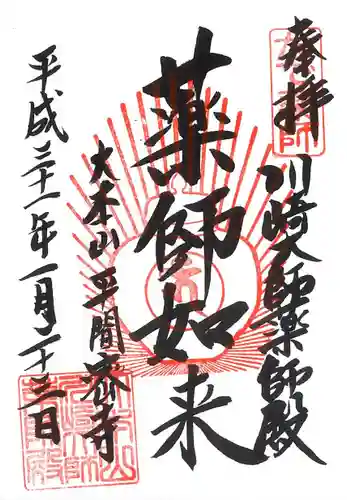 奉拝
川崎大師薬師殿
薬師如来
大本山平間寺
平成三十一年一月二十三日